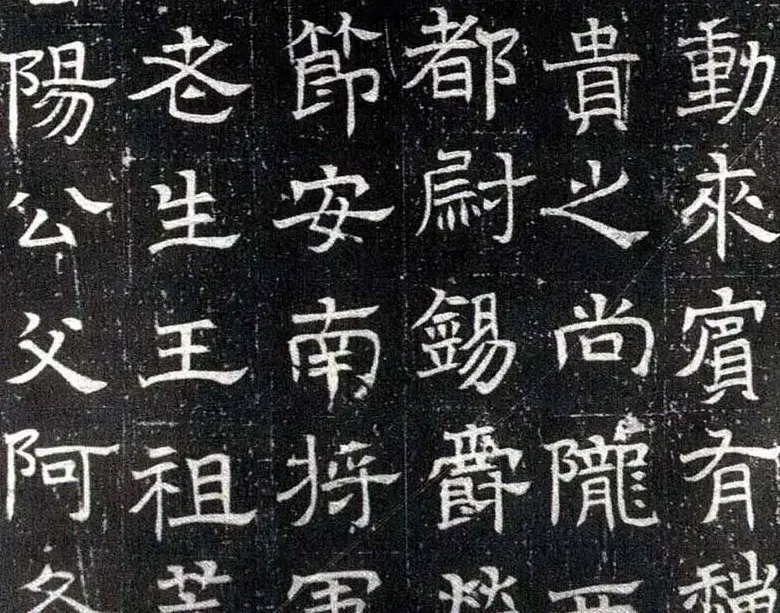 動來賓有
貴之尚隴西
都尉錫爵
節安南將軍
老生王祖
陽公父阿